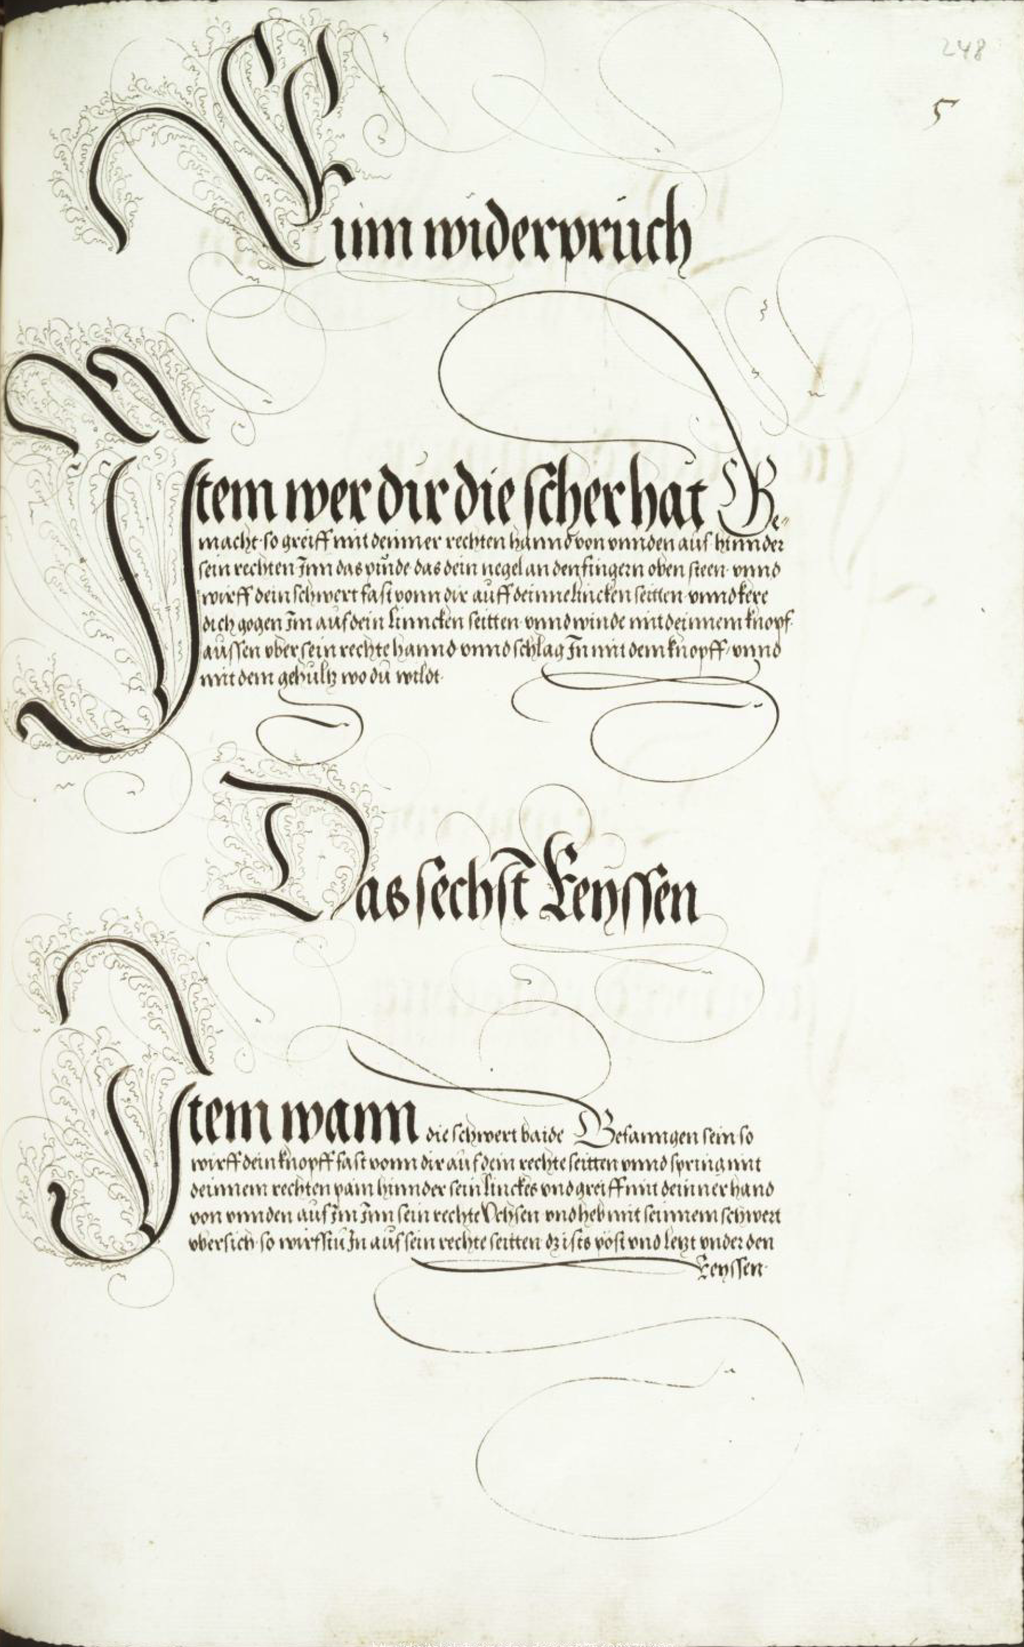 248
5
Zum widerpruch
Item wer dir die scher hat Ge„
macht · so greiff mit deinner rechten hannd von vnnden auf hinnder
sein rechten Inn das pünde das dein negel an den fingern oben steen · vnnd
wirff dein schwert fast vonn dir auff deinne lincken seitten · vnnd kere
dich gogen Im auf dein linncken seitten · vnnd winde mit deinnem knopf
aussen vber sein rechte hannd vnnd schlag In mit dem knopff · vnnd
mit dem gehultz wo du wildt ·
Das sechst Leyssen
Item wann die schwert baide Gefanngen sein so
wirff dein knopff fast vonn dir auf dein rechte seitten vnnd spring mit
deinnem rechten pain hinnder sein linckes vnd greiff mit deinner hand
von vnnden auf Im Inn sein rechte Vchsen vnd heb mit seinnem schwert
vbersich · so wirffstu In auf sein rechte seitten dz ist's pöst vnd letzt vnder den
Leyssen ·